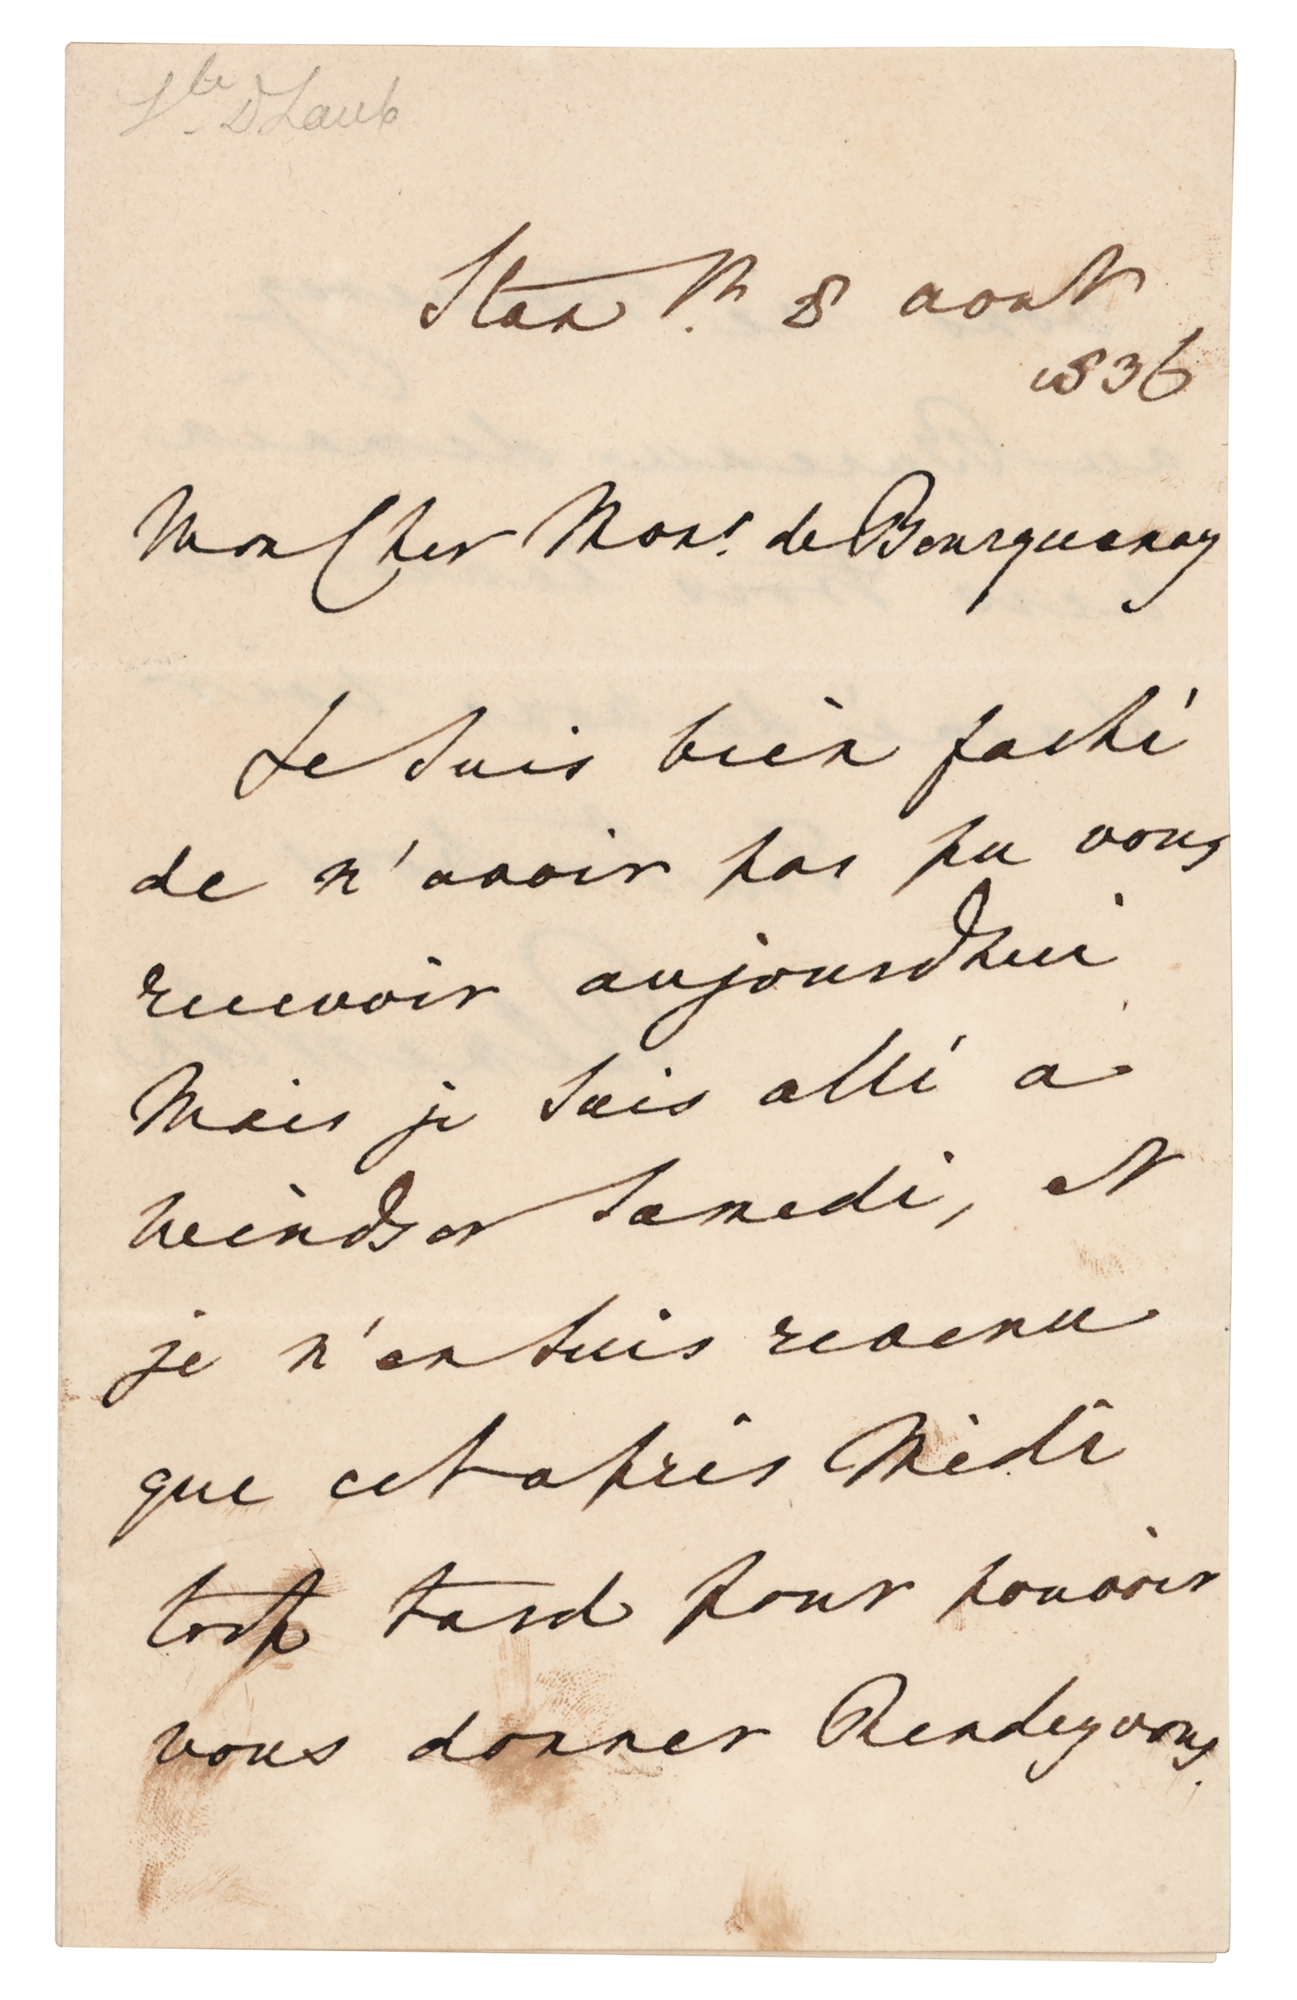 Stan. Th. 8 aout
1836
Mon Cher Mons. de Bourquenay
Je suis bien faché
de n'avoir pas pu vous
recevoir aujourdhui
Mais je suis allé a
Windsor Samedi, et
je n'en suis revenu
que cet après Midi
trop tard pour pouvoir
vous donner Rendezvous.